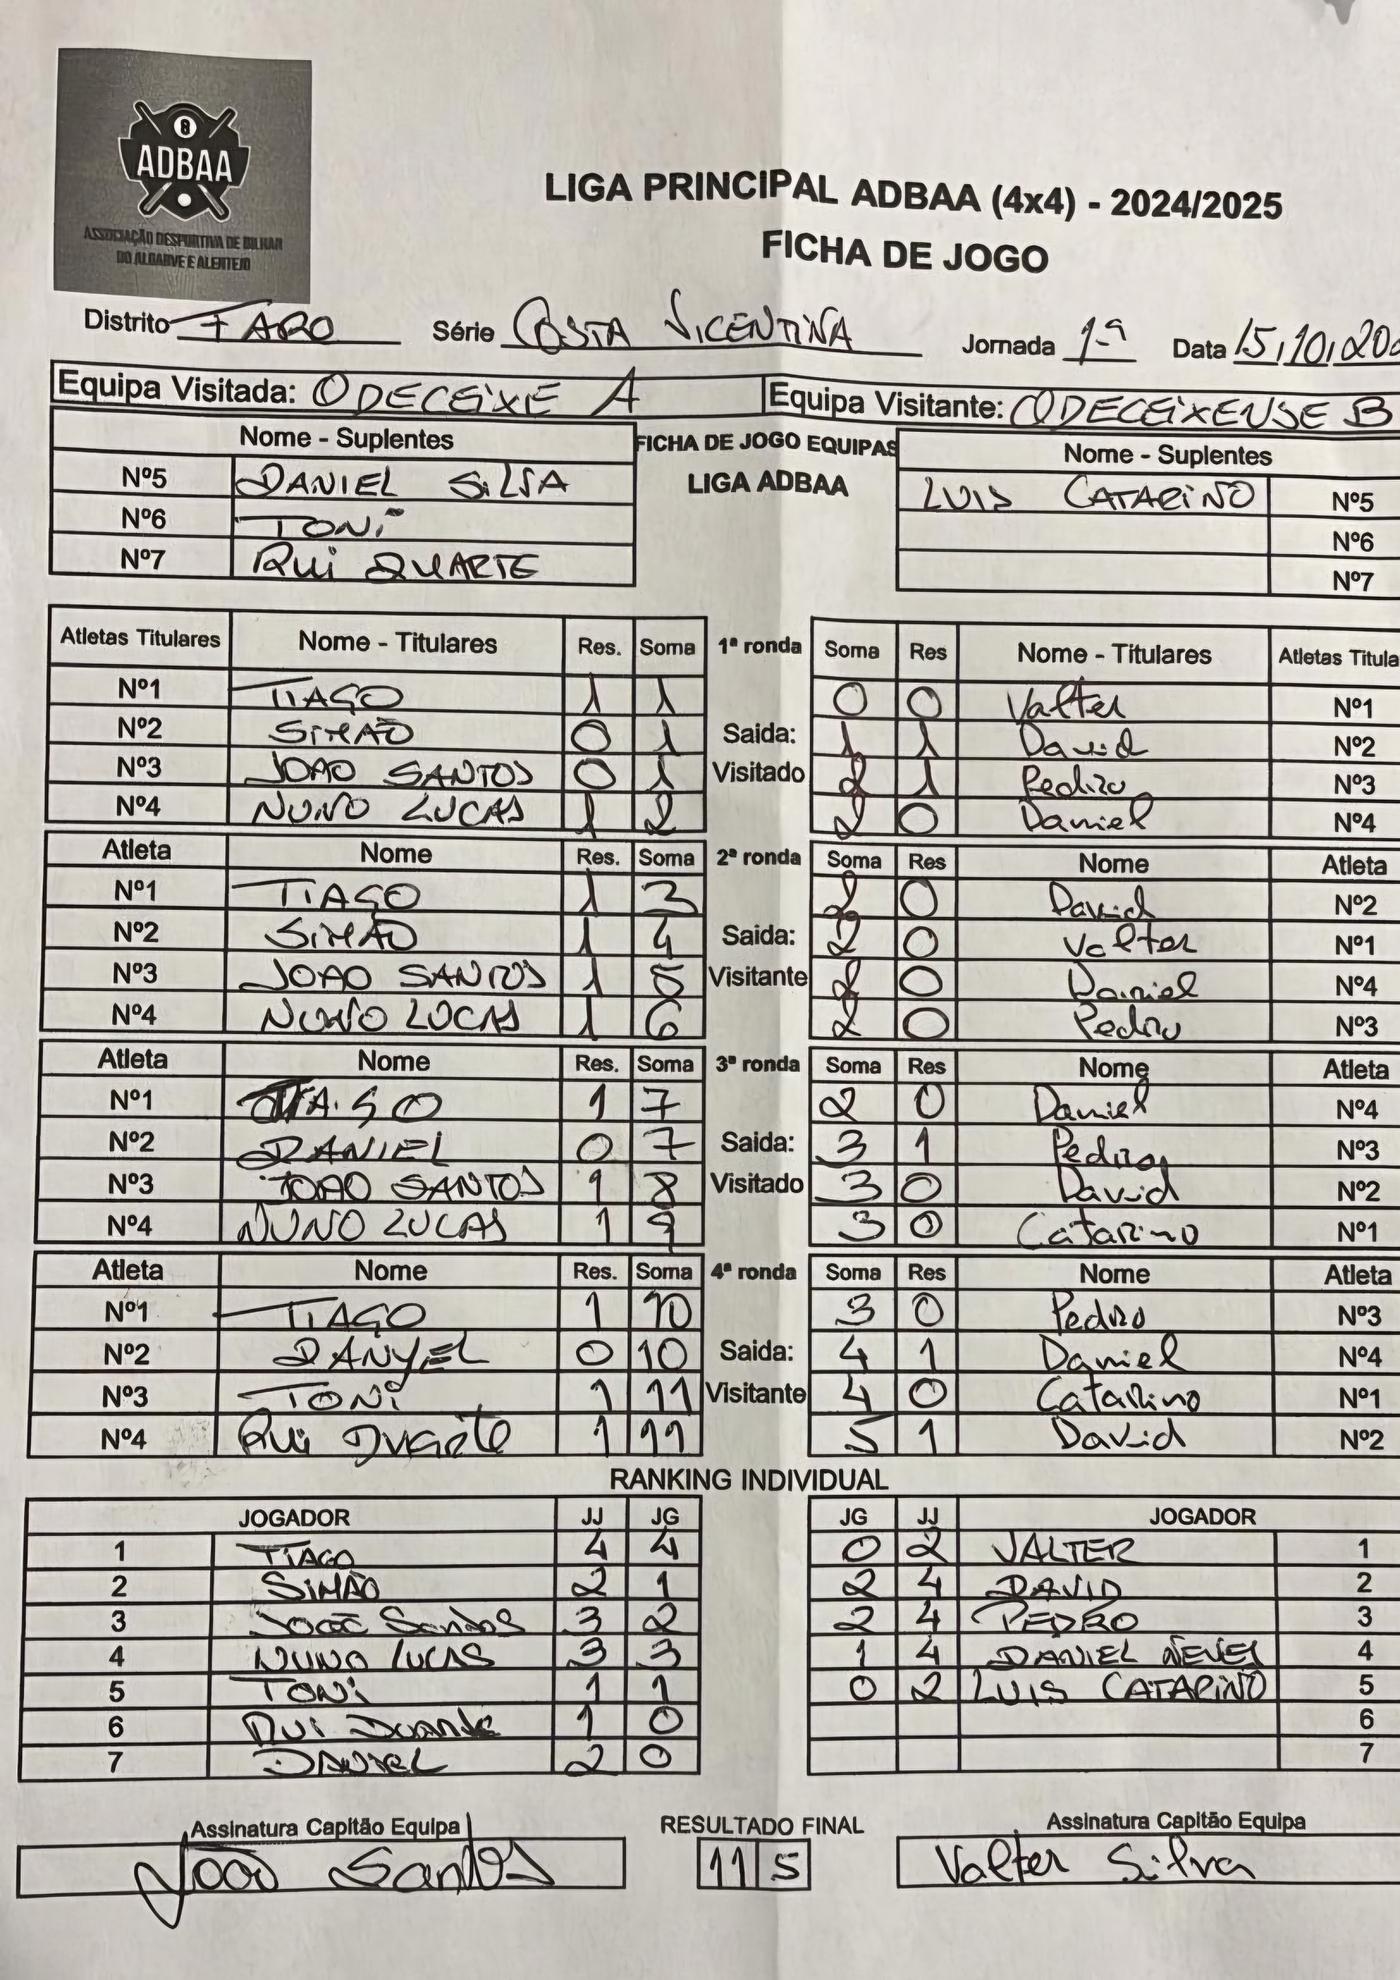 ADBAA
ASSOCIAÇÃO DESPORTIVA DE BILHAR
DO ALGARVE E ALENTEJO
LIGA PRINCIPAL ADBAA (4x4) - 2024/2025
FICHA DE JOGO
Distrito FARO Série COSTA VICENTINA Jornada 1ª Data 15,10,20
Equipa Visitada: ODECEIXE A Equipa Visitante: ODECEIXENSE B
Nome - Suplentes FICHA DE JOGO EQUIPAS Nome - Suplentes
Nº5 DANIEL SILVA LIGA ADBAA LUIS CATARINO Nº5
Nº6 TONI Nº6
Nº7 RUI DUARTE Nº7
Atletas Titulares Nome - Titulares Res. Soma 1ª ronda Soma Res Nome - Titulares Atletas Titula
Nº1 TIAGO 1 1 0 0 Valter Nº1
Nº2 SIMÃO 0 1 Saida: 1 1 David Nº2
Nº3 JOAO SANTOS 0 1 Visitado 2 1 Pedro Nº3
Nº4 NUNO LUCAS 1 2 2 0 Daniel Nº4
Atleta Nome Res. Soma 2ª ronda Soma Res Nome Atleta
Nº1 TIAGO 1 3 2 0 David Nº2
Nº2 SIMÃO 1 4 Saida: 2 0 Valter Nº1
Nº3 JOAO SANTOS 1 5 Visitante 2 0 Daniel Nº4
Nº4 NUNO LUCAS 1 6 2 0 Pedro Nº3
Atleta Nome Res. Soma 3ª ronda Soma Res Nome Atleta
Nº1 TIAGO 1 7 2 0 Daniel Nº4
Nº2 DANIEL 0 7 Saida: 3 1 Pedro Nº3
Nº3 JOAO SANTOS 1 8 Visitado 3 0 David Nº2
Nº4 NUNO LUCAS 1 9 3 0 Catarino Nº1
Atleta Nome Res. Soma 4ª ronda Soma Res Nome Atleta
Nº1 TIAGO 1 10 3 0 Pedro Nº3
Nº2 DANYEL 0 10 Saida: 4 1 Daniel Nº4
Nº3 TONI 1 11 Visitante 4 0 Catarino Nº1
Nº4 Rui Duarte 1 11 5 1 David Nº2
RANKING INDIVIDUAL
JOGADOR JJ JG JG JJ JOGADOR
1 TIAGO 4 4 0 2 VALTER 1
2 SIMÃO 2 1 2 4 DAVID 2
3 João Santos 3 2 2 4 PEDRO 3
4 NUNO LUCAS 3 3 1 4 DANIEL NEVES 4
5 TONI 1 1 0 2 LUIS CATARINO 5
6 Rui Duarte 1 0 6
7 DANIEL 2 0 7
Assinatura Capitão Equipa RESULTADO FINAL Assinatura Capitão Equipa
João Santos 11 5 Valter Silva